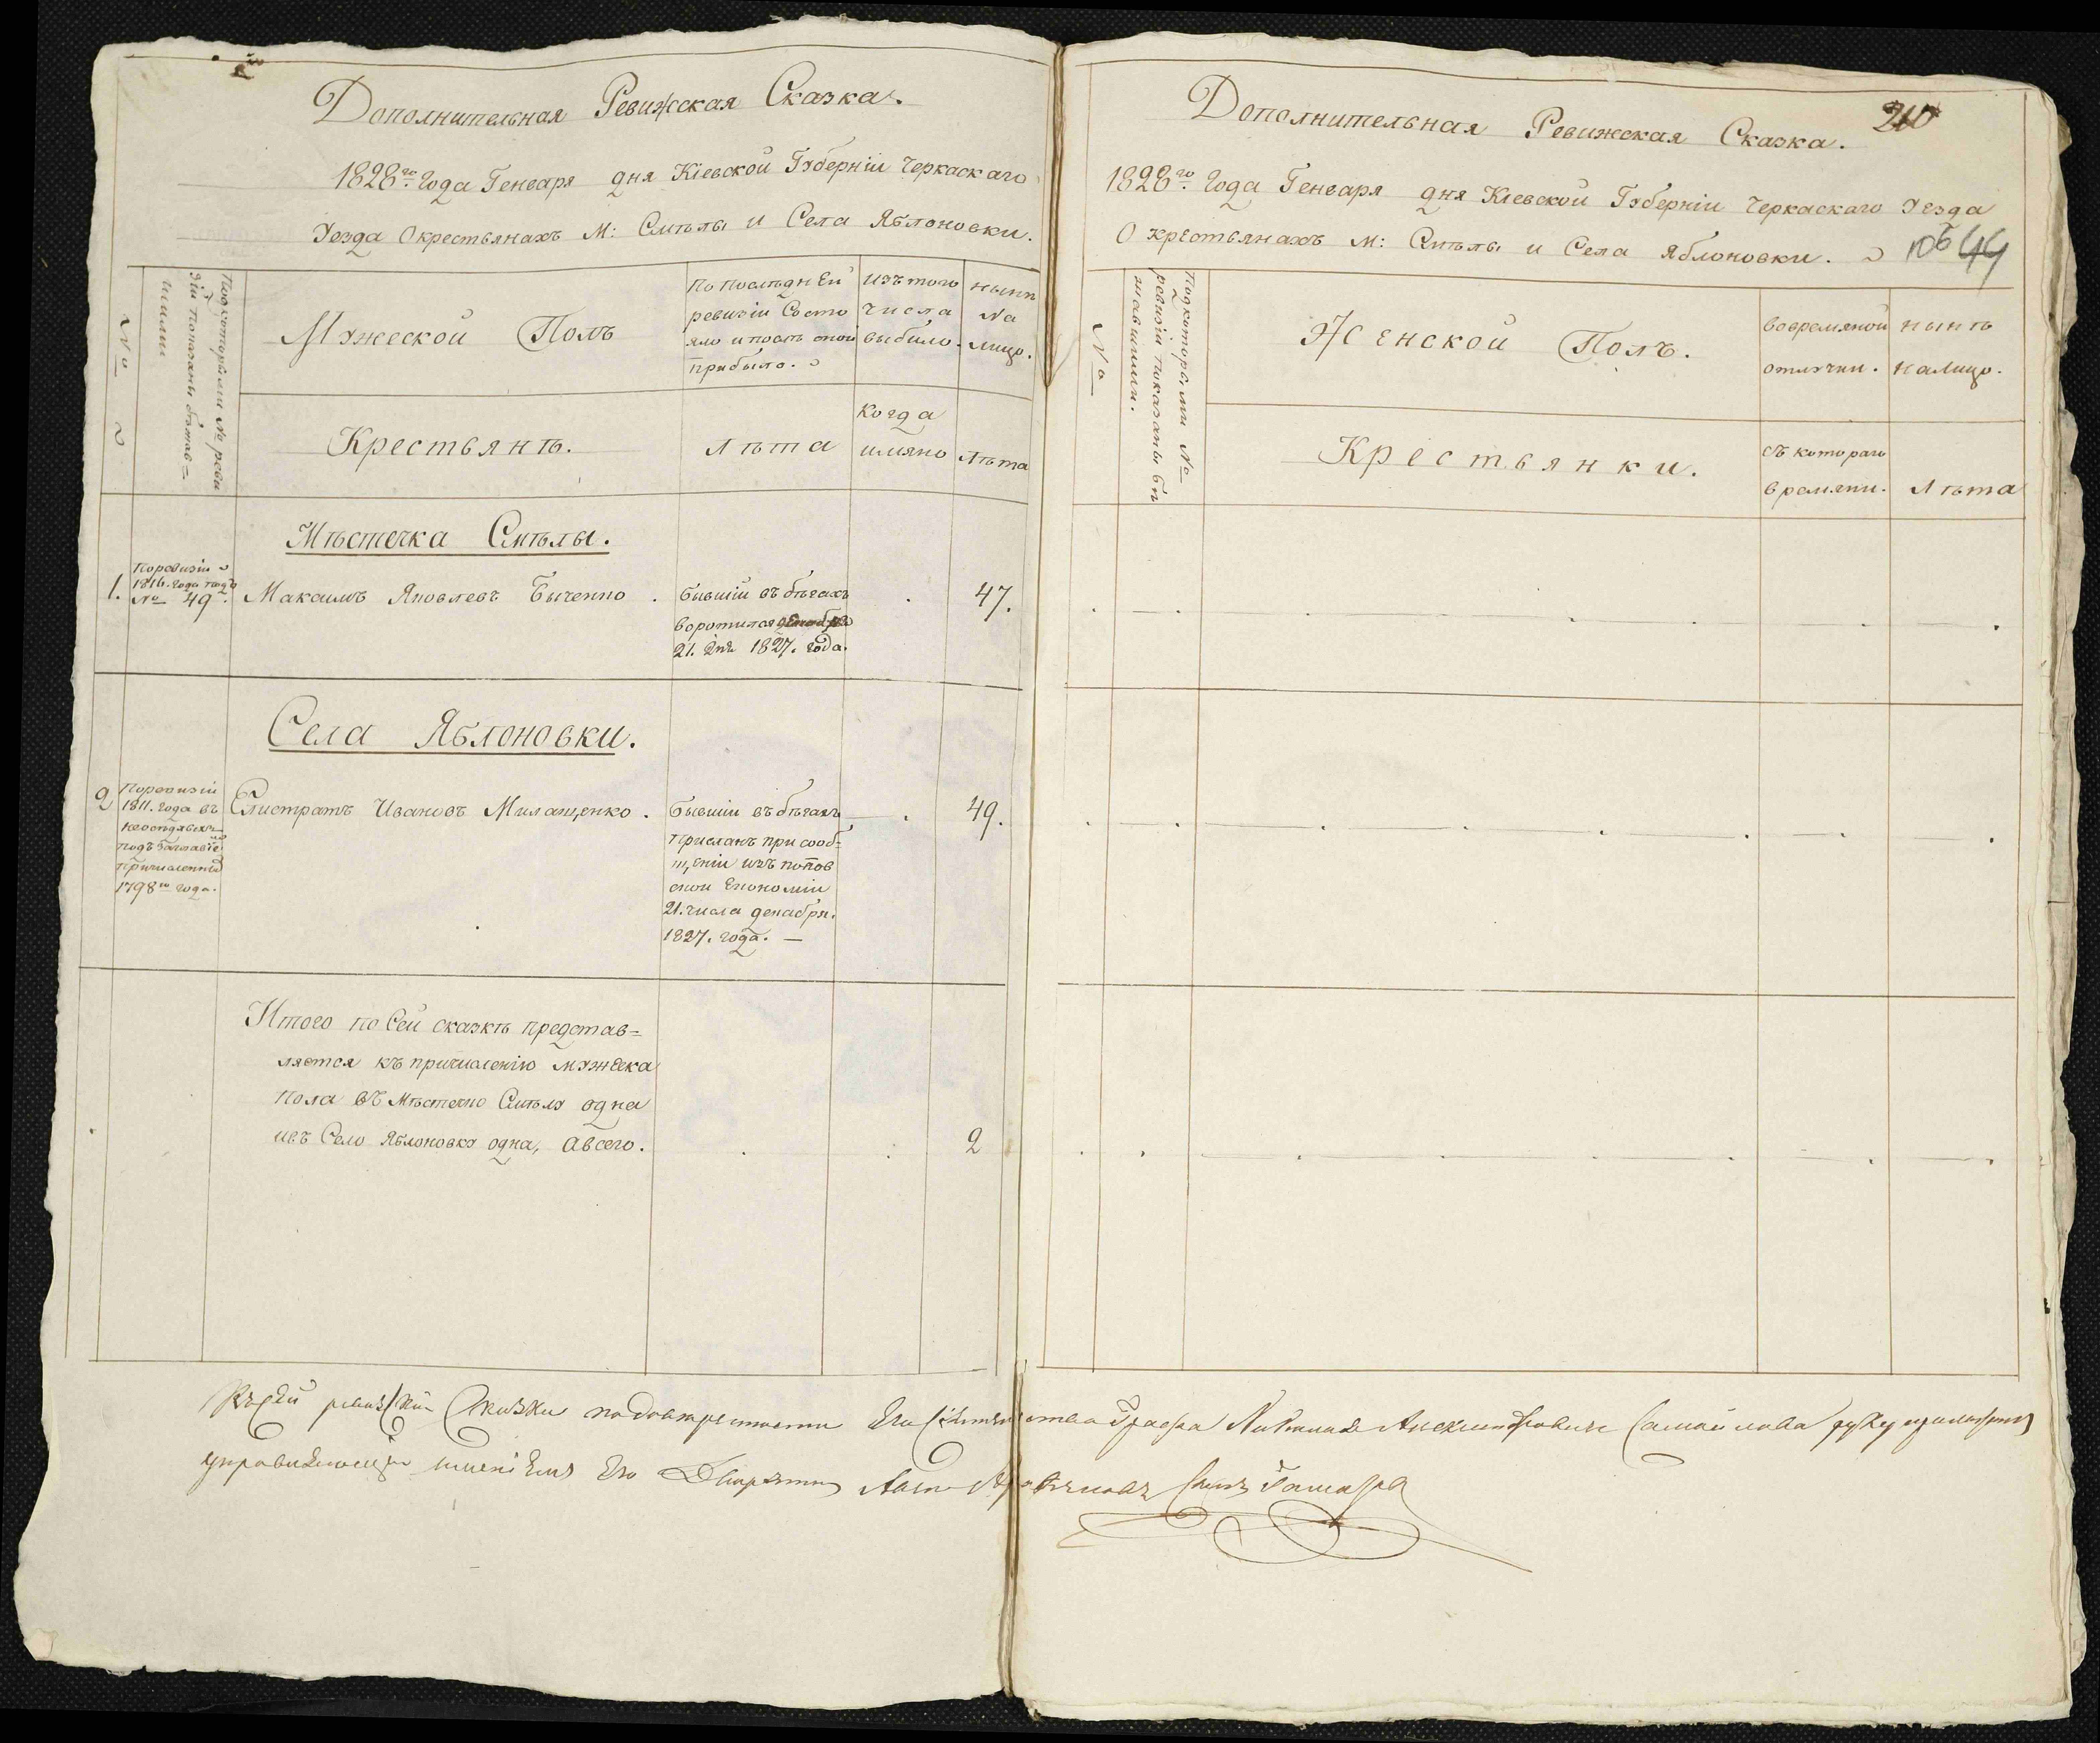 Дополнительная Ревижская Сказка.
1828го Года Генваря дня Кіевской Губерніи Черкаскаго
Уезда О крестьянахъ М: Смѣлы и Села Яблоновки.
№
Подкоторыми № реви
зіи показаны бѣжав=
шими
Мужеской Полъ
По послѣдней
ревизіи Состо
яло и послѣ тои
прибыло.
изъ того
числа
выбыло.
нынѣ
на
лицо.
Крестьянѣ.
Лѣта
Когда
имяно
Лѣта
Мѣстечка Смѣлы.
1.
По ревизіи
1816. года подъ
№ 49.
Макаимъ Яковлевъ Быченко.
бывшій въ бѣгахъ
воротился декабря
21. дня 1827. года.
47.
Села Яблоновки.
2
По ревизіи
1811. года въ
подъ
1798го года.
Елистратъ Ивановъ Милащенко.
бывшіи въ бѣгахъ
присланъ при сооб=
щеніи изъ попов
скои Економіи
21. числа декабря.
1827. года. —
49.
Итого по Сей сказкѣ представ=
ляется къ причисленію мужеска
пола въ Мѣстечко Смѣлу одна
ивъ Село Яблоновку одна, а всего.
2
Дополнительная Ревижская Сказка.
210
1828го Года Генваря дня Кіевской Губерніи Черкаскаго Уезда
О крестьянахъ М: Смѣлы и Села Яблоновки.
106 44
№
Подкоторыми №
ревизіи показаны бѣ
жавшими.
Женской Полъ.
вовремяной
отлучки.
нынѣ
налицо.
Крестьянки.
съ котораго
времяни.
Лѣта
Къ сей ревизской Сказки по довѣренности Его Сіятельства Графа Николая Александровича Самойлова руку приложилъ
управляющій имениемъ Его Дворянинъ сынъ